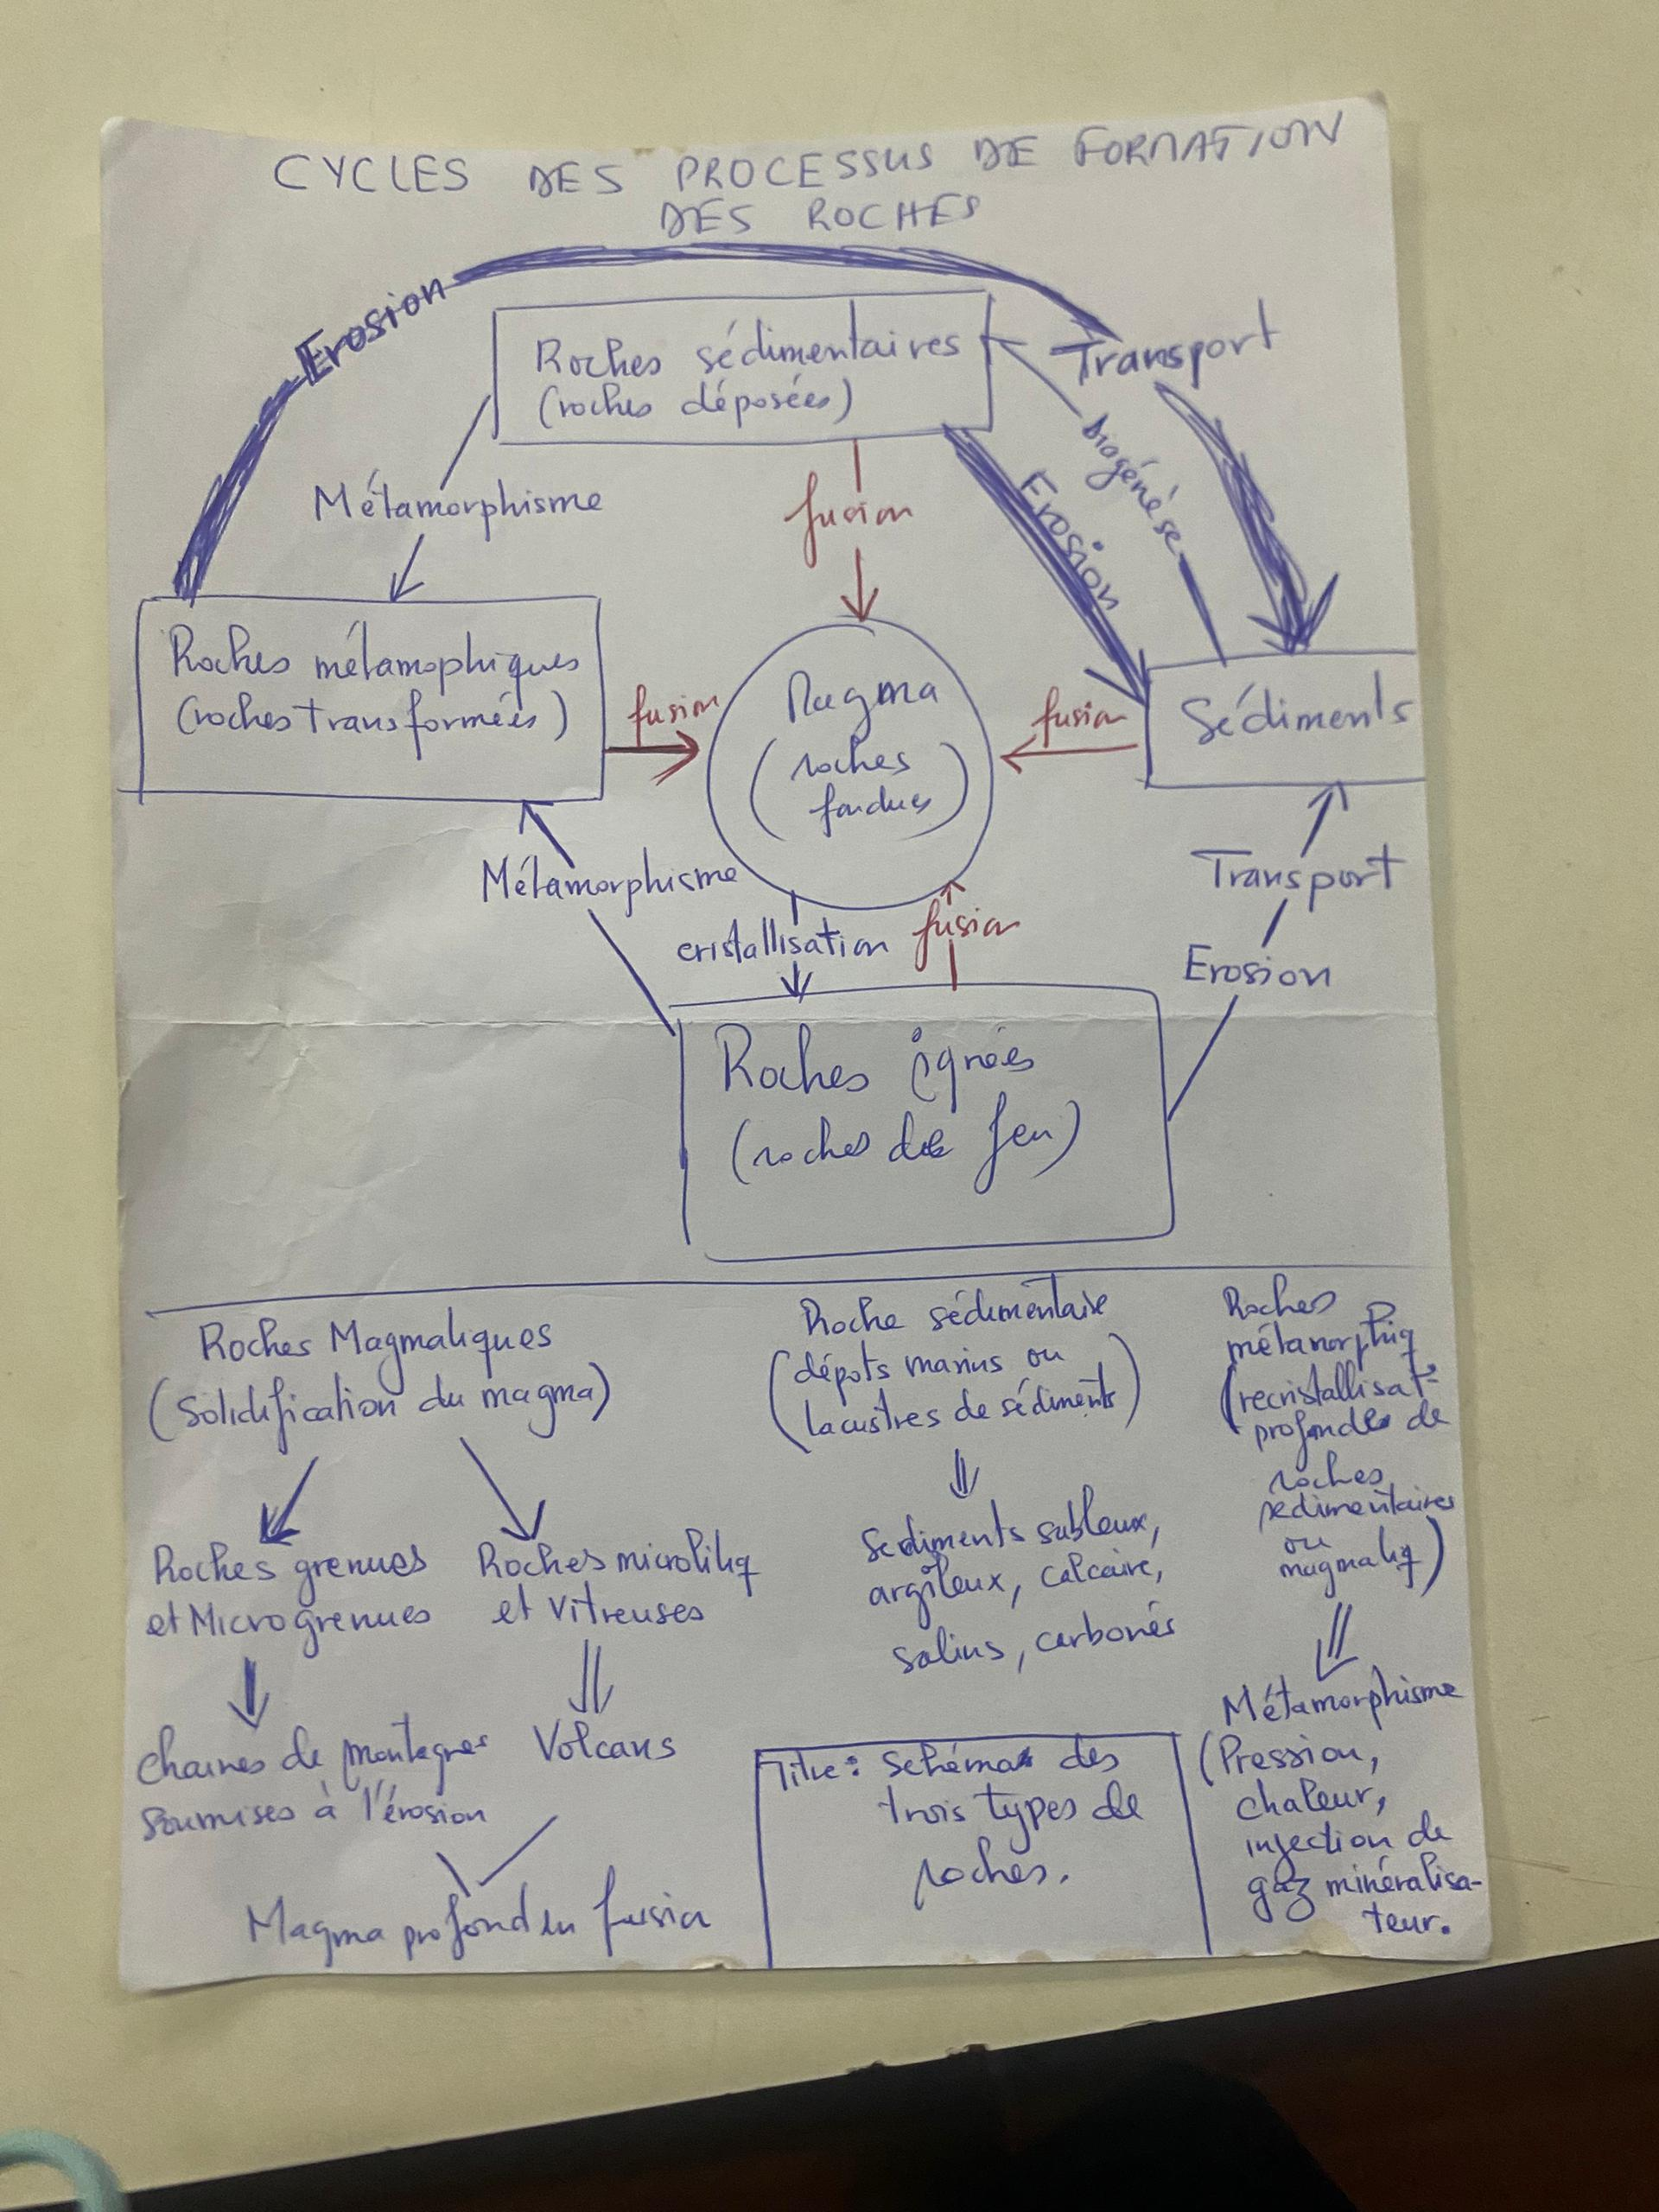 CYCLES DES PROCESSUS DE FORMATION
DES ROCHES
Erosion
Transport
Roches sédimentaires
(roches déposées)
biogénèse
Erosion
Métamorphisme
fusion
Roches métamophiques
(roches transformées)
fusion
Magma
(roches
fondues)
fusion
Sédiments
Métamorphisme
cristallisation
fusion
Transport
Erosion
Roches ignées
(roches de feu)
Roches Magmatiques
(Solidification du magma)
Roches grenues
et Microgrenues
Roches microlitiq
et Vitreuses
Chaines de montagnes
soumises à l'érosion
Volcans
Magma profond en fusion
Roche sédimentaire
(dépots marins ou
lacustres de sédiments)
Sediments sableux,
argileux, calcaire,
salins, carbonés
Titre: Schéma des
trois types de
roches.
Roches
métamorphiq
(recristallisat°
profonde de
roches
sédimentaires
ou
magmatiq)
Métamorphisme
(Pression,
chaleur,
injection de
gaz minéralisa-
teur.